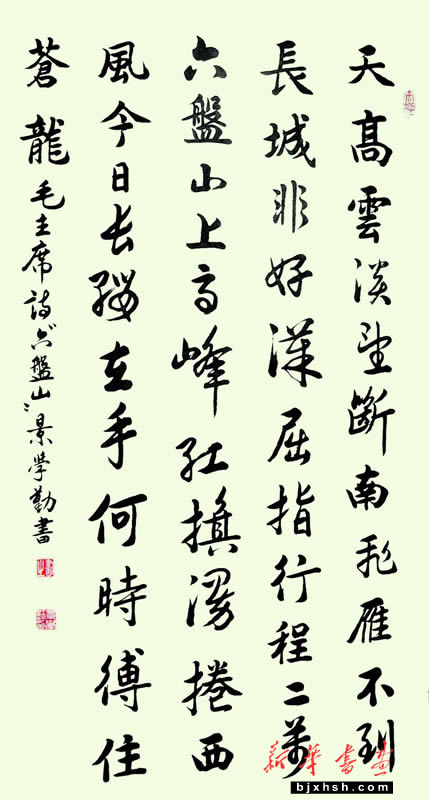 天高雲淡望斷南飛雁不到
長城非好漢屈指行程二萬
六盤山上高峰紅旗漫捲西
風今日长纓在手何時縛住
蒼龍 毛主席詩六盤山 景學勤書
新華書畫
bjxhsh.com